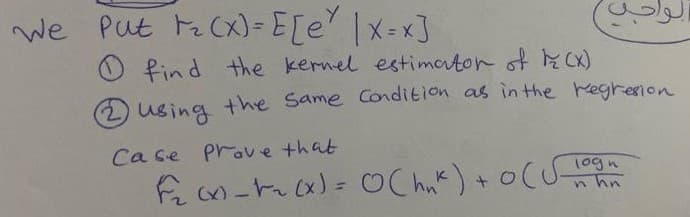 الواجب
We Put r₂(x) = E[e^Y | X=x]
① find the kernel estimator of r₂(x)
② using the same Condition as in the regresion
Case Prove that
r̂₂(x) - r₂(x) = O(hₙᵏ) + O(√(log n / n hₙ))